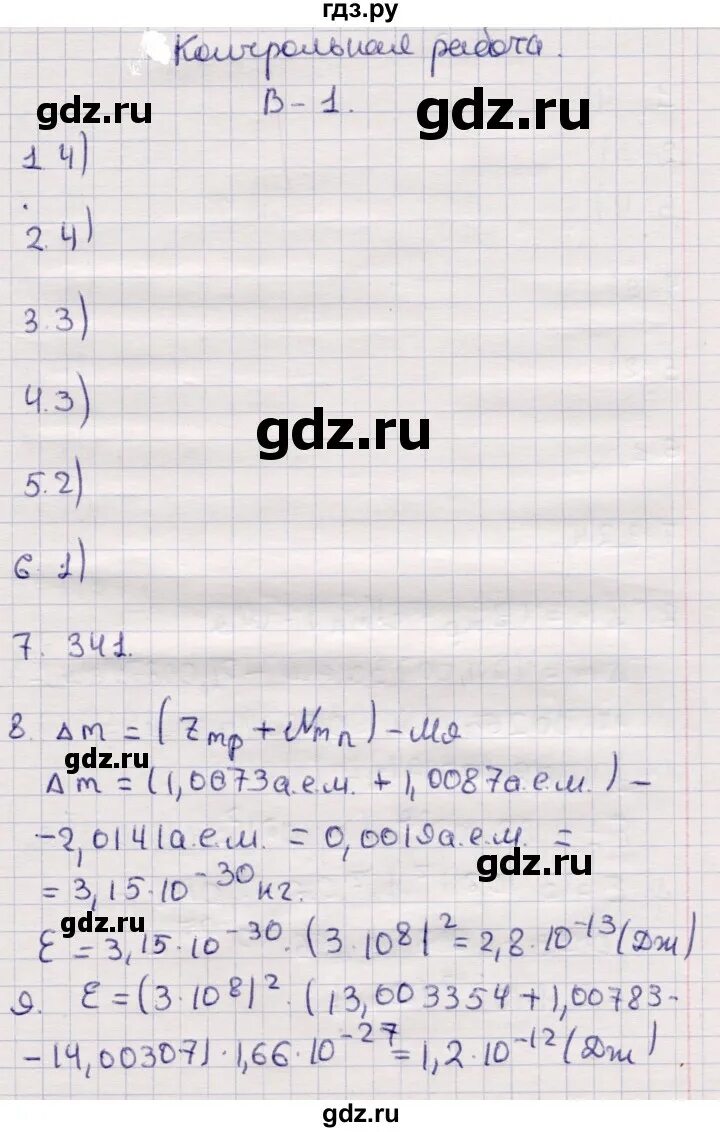 гдз.ру
Контрольная работа.
gdz.ru
В-1.
gdz.ru
1 4)
2. 4)
3. 3)
4. 3)
gdz.ru
5. 2)
6. 1)
7. 341.
8. Δm = (Zmp + Nmn) - Mя
gdz.ru
Δm = (1,0073а.е.м. + 1,0087а.е.м.) -
- 2,0141а.е.м. = 0,0019а.е.м. =
gdz.ru
= 3,15·10⁻³⁰кг.
gdz.ru
ε = 3,15·10⁻³⁰·(3·10⁸)² = 2,8·10⁻¹³(Дж)
9. ε = (3·10⁸)²·(13,003354 + 1,00783-
- 14,00307)·1,66·10⁻²⁷ = 1,2·10⁻¹²(Дж)
gdz.ru